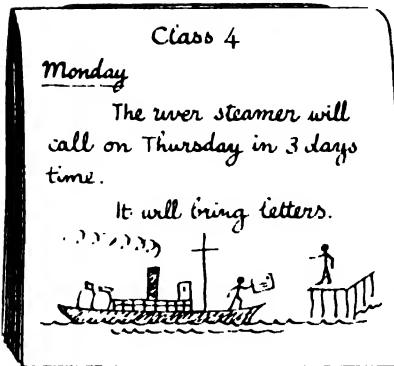 Class 4
Monday
The river steamer will
call on Thursday in 3 days
time.
It will bring letters.